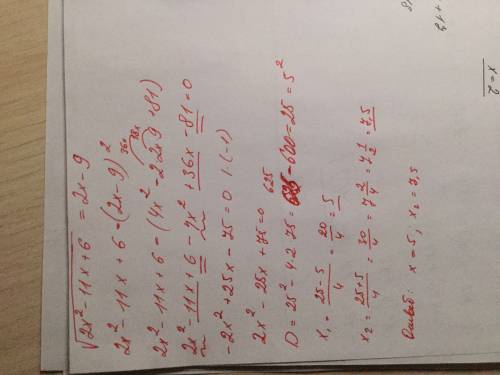 √2x²-11x+6 = 2x-9
2x²-11x+6=(2x-9)²
2x²-11x+6=(4x²-2·2x·9+81)
36x 18x
2x²-11x+6-4x²+36x-81=0
-2x²+25x-75=0 |·(-1)
2x²-25x+75=0
D=25²-4·2·75=625-600=25=5²
x₁=25-5/4=20/4=5
x₂=25+5/4=30/4=7 2/4=7 1/2=7,5
x=5; x₂=7,5
x=2